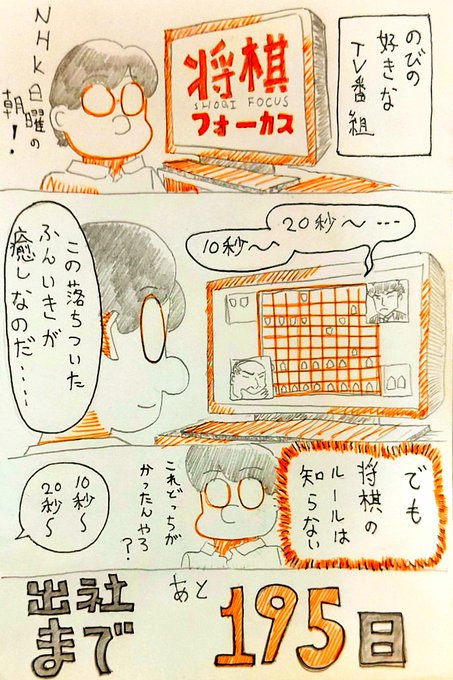 のびの
好きな
TV番組
将棋
SHOGI FOCUS
フォーカス
NHK日曜の
朝!
20秒〜…
10秒〜
この落ちついた
ふんいきが
癒しなのだ……
でも
将棋の
ルールは
知らない
これどっちが
かったんやろ
?
10秒〜
20秒〜
出社
まで
あと
195日